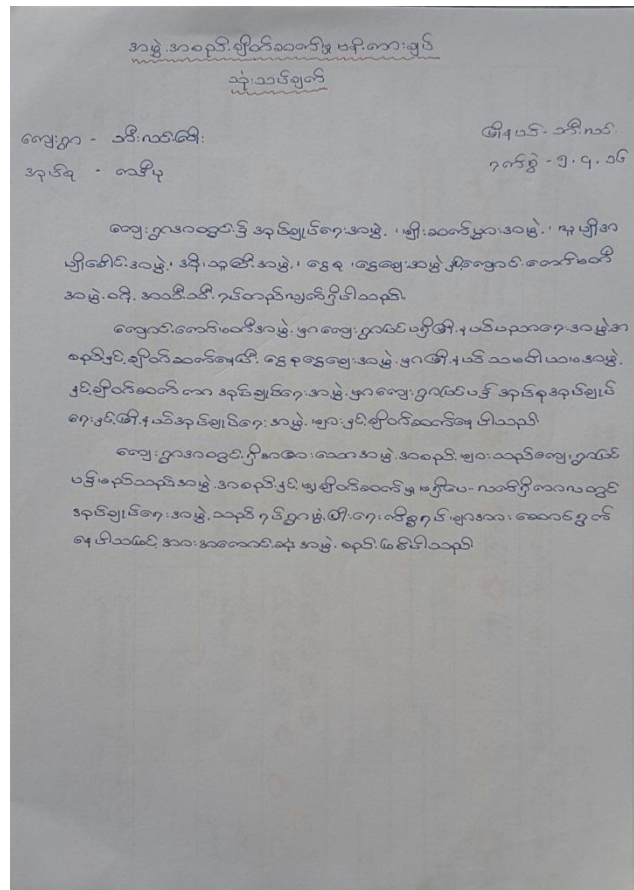 အဖွဲ့အစည်းချိတ်ဆက်မှု ဗန်းကားချပ်
သုံးသပ်ချက်
ကျေးရွာ - သီးလင်းခေါ်း
မြို့နယ် - သီးလင်း
အုပ်စု - ကသီပု
ရက်စွဲ - ၅.၄.၁၆
ကျေးရွာအတွင်း၌ အုပ်ချုပ်ရေးအဖွဲ့၊ မျိုးဆက်ပွားအဖွဲ့၊ လူမျိုးအ
မျိုးခေါင်းအဖွဲ့၊ ငွေစု၊ ငွေချေးအဖွဲ့ နှင့်ကျောင်းကော်မတီ
အဖွဲ့ စတဲ့ အသီးသီး ရပ်တည်လျက်ရှိပါသည်။
ကျောင်းကော်မတီအဖွဲ့မှာကျေးရွာပြင်ပရှိမြို့နယ်ပညာရေးအဖွဲ့အ
စည်းနှင့်ချိတ်ဆက်နေပြီး ငွေစုငွေချေးအဖွဲ့မှာမြို့နယ် သမဝါယမအဖွဲ့
နှင့်ချိတ်ဆက်ကာ အုပ်ချုပ်ရေးအဖွဲ့မှာကျေးရွာပြင်ပ၌ အုပ်စုအုပ်ချုပ်
ရေးနှင့်မြို့နယ်အုပ်ချုပ်ရေးအဖွဲ့များနှင့်ချိတ်ဆက်နေပါသည်။
ကျေးရွာအတွင်းရှိအခြားသောအဖွဲ့အစည်းများသည်ကျေးရွာပြင်
ပ၌မည်သည့်အဖွဲ့အစည်းနှင့်မျှချိတ်ဆက်မှုမရှိပေ။ လက်ရှိကာလတွင်
အုပ်ချုပ်ရေးအဖွဲ့သည်ရပ်ရွာဖွံ့ဖြိုးရေးကိစ္စရပ်များအား ဆောင်ရွက်
နေပါသဖြင့်အားအကောင်းဆုံးအဖွဲ့အစည်းဖြစ်ပါသည်။